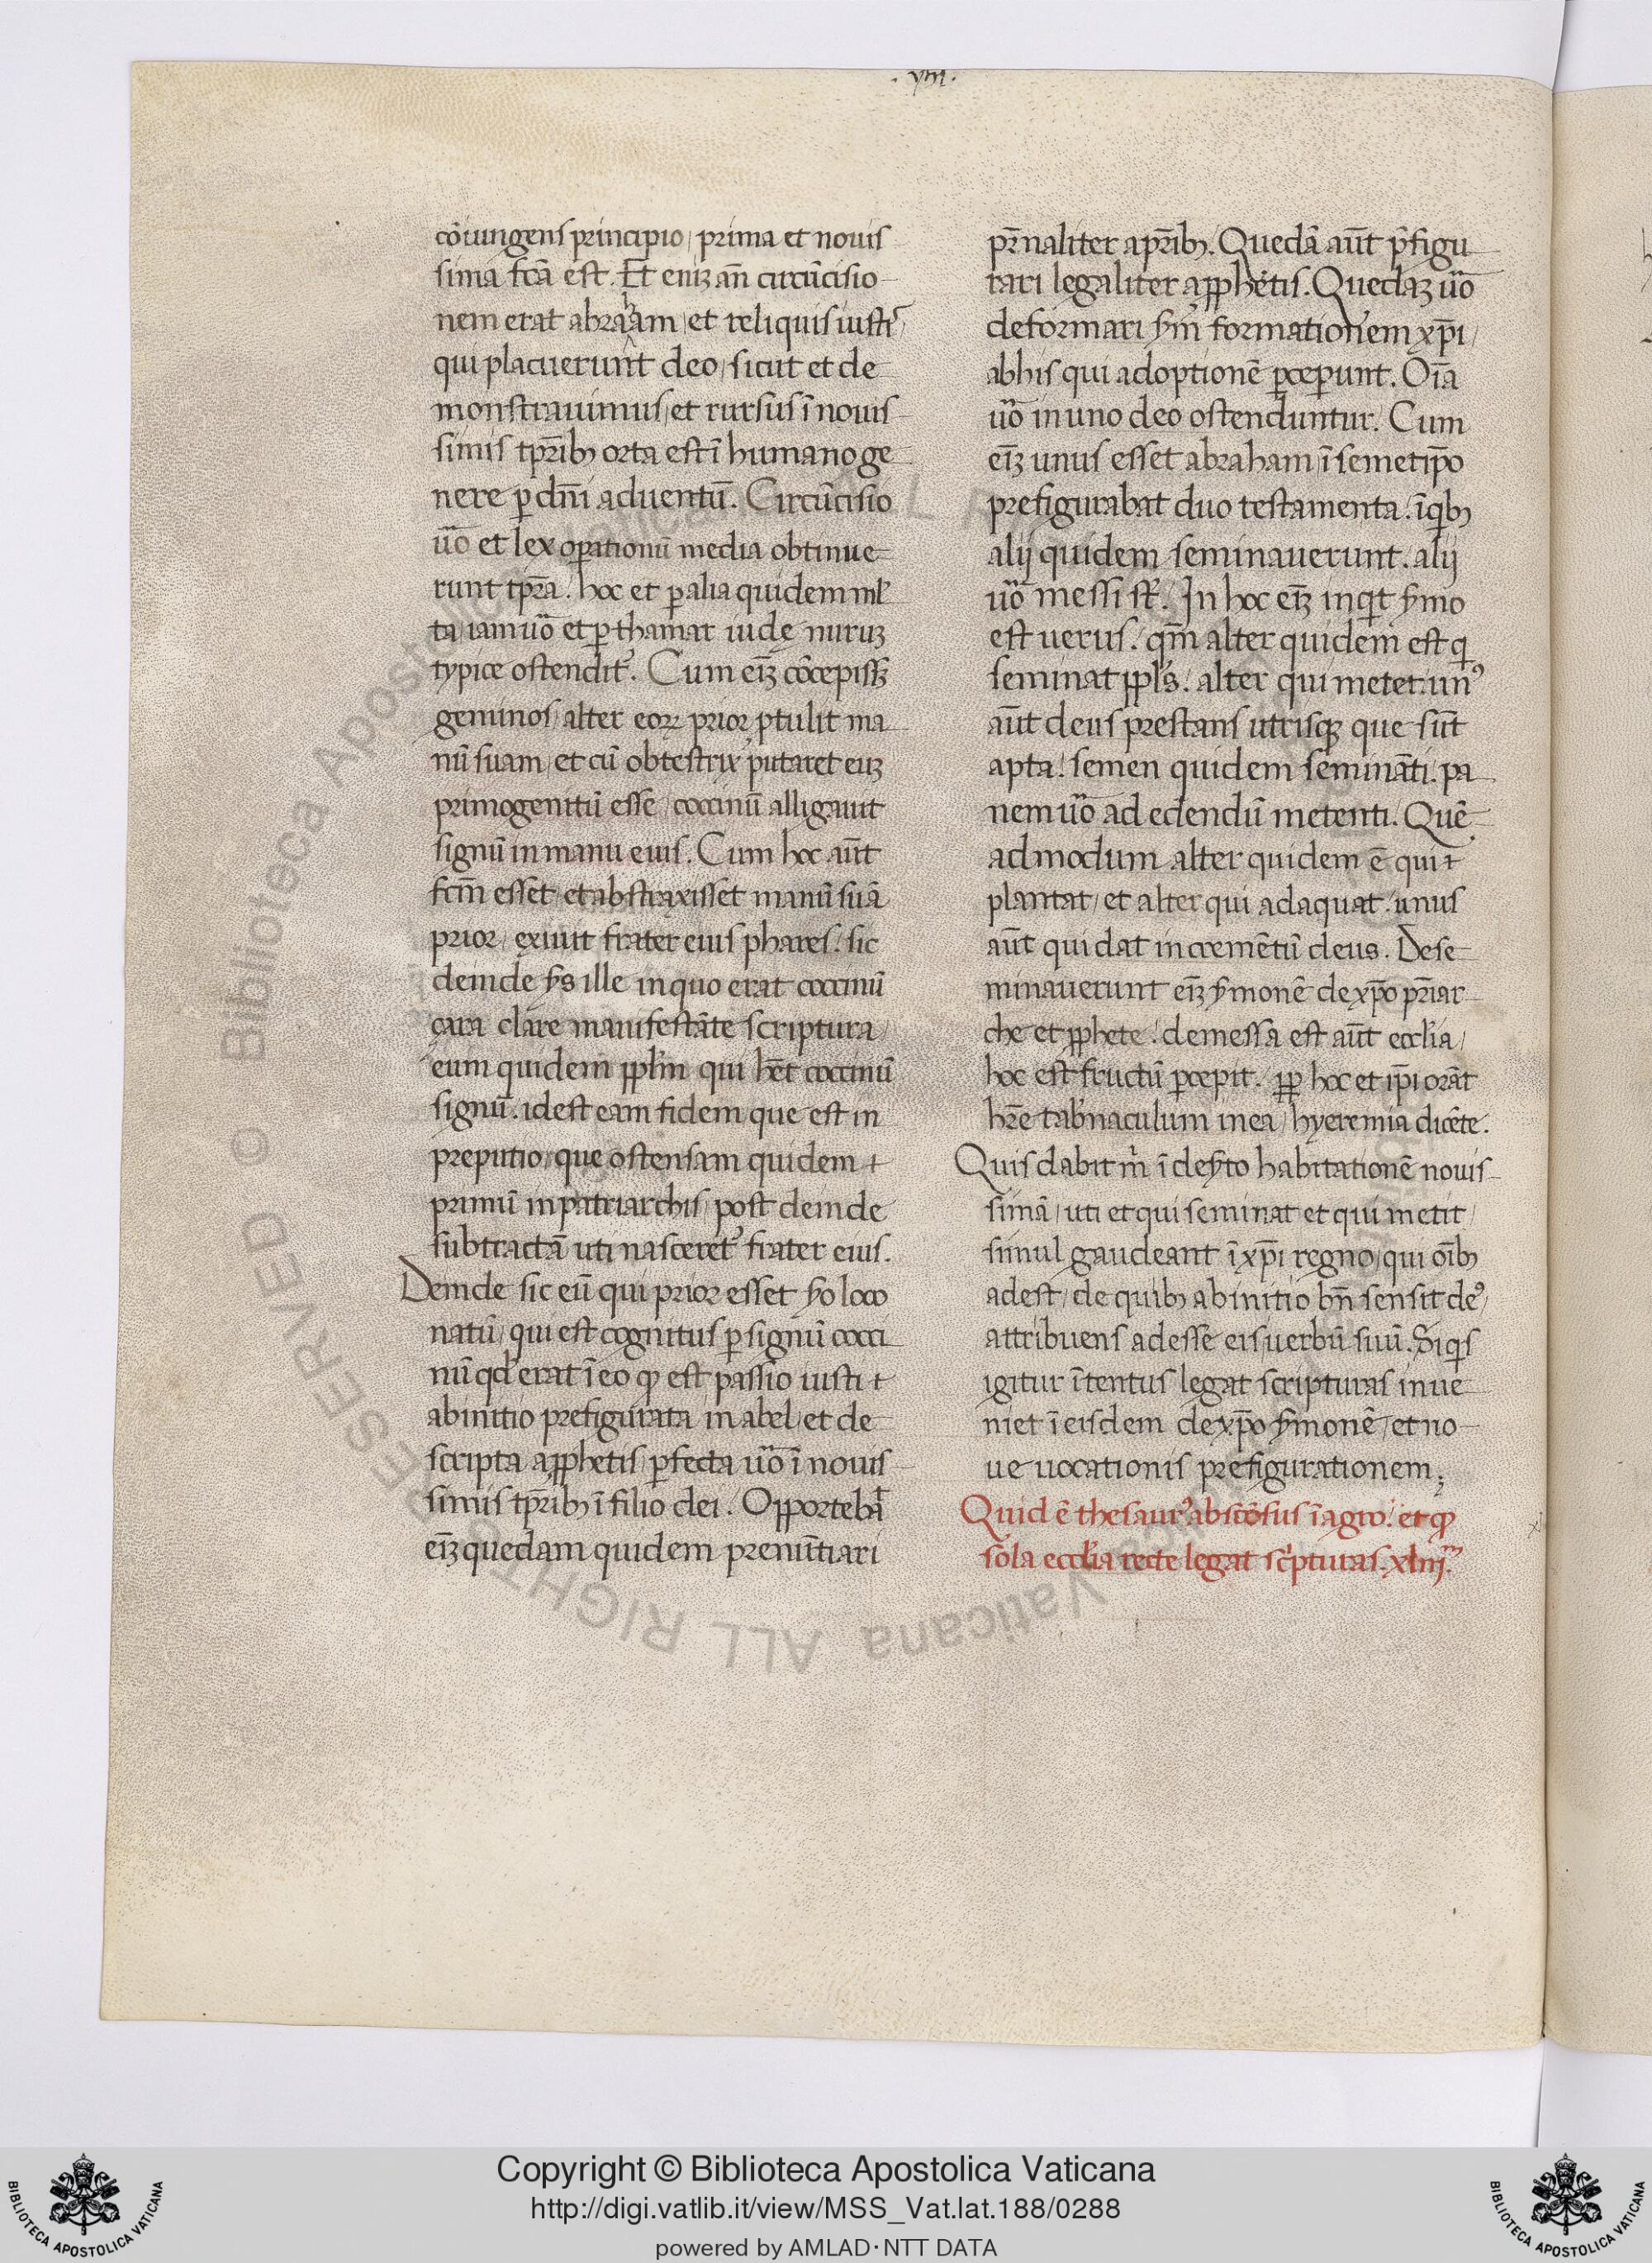 .viij.
cōiungens principio / prima et nouis
sima fcā est. Et eniʒ an̄ circūcisio
nem erat abraham / et reliquis iustis /
qui placuerunt deo / sicut et de
monstrauimus / et rursus ī nouis
simis tp̄rib; orta est ī humano ge
nere ꝑ dn̄i aduentū. Circūcisio
ũo et lex oꝑationū media obtinue
runt tp̄ra. hoc et ꝑ alia quidem ml
ta / iam ũo et ꝑ thamar iude nuruʒ
typice ostendit᷑. Cum eīʒ cōcepissʒ
geminos / alter eoꝝ prior ꝓtulit ma
nū suam / et cū obtestrix putaret euʒ
primogenitū esse / coccinū alligauit
signū in manu eius. Cum hoc aūt
fcm̄ esset / et abstraxisset manū suā
prior / exiuit frater eius phares. sic
deinde ẜs ille in quo erat coccinū
çara clare manifestāte scriptura /
eum quidem ppl̄m qui hēt coccinū
signū. idest eam fidem que est in
preputio / que ostensam quidem
primū in patriarchis / post deinde
subtractā uti nasceret᷑ frater eius.
Deinde sic eū qui prior esset ẜo loco
natū / qui est cognitus ꝑ signū cocci
nū qd erat ī eo ꝙ est passio iusti
ab initio prefigurata in abel / et de
scripta a ꝓphetis / ꝑfecta ũo ī nouis
simis tp̄rib; ī filio dei. Opportebāt
eīʒ quedam quidem prenūtiari
pr̄naliter a pr̄ib;. Quedā aūt p̄figu
rari legaliter a ꝓphetis. Quedaʒ ũo
deformari ẜm formationem xp̄i /
ab his qui adoptionē ꝑceperunt. Oīa
ũo in uno deo ostenduntur. Cum
eīʒ unus esset abraham / ī semetip̄o
prefigurabat duo testamenta. ī qib;
alij quidem seminauerunt. alij
ũo messi st̄. In hoc eīʒ inqit ẜmo
est uerus. qm̄ alter quidem est q
seminat ppl̄s. alter qui metet. unꝰ
aūt deus prestans utrisqʒ que sūt
apta. semen quidem semināti. pa
nem ũo ad edendū metenti. Quē
admodum alter quidem ē qui
plantat / et alter qui adaquat. unus
aūt qui dat incremētū deus. Dese
minauerunt eīʒ ẜmonē de xp̄o pr̄iar
che et ꝓphete. demessa est aūt eccl̄ia /
hoc est fructū ꝑcepit. ꝓp hoc et ip̄i orāt
hr̄e tab̄naculum in ea / hyeremia dicēte.
Quis dabit m̄ ī deẜto habitationē nouis
simā / uti et qui seminat et qui metit /
simul gaudeant ī xp̄i regno / qui oīb;
adest / de quib; ab initio bn̄ sensit deꝰ /
attribuens adesse eis uerbū suū. Si qis
igitur ītentus legat scripturas inue
niet ī eisdem de xp̄o ẜmonē / et no
ue uocationis prefigurationem;
Quid ē thesaurꝰ abscōsus ī agro. et ꝙ
sola eccl̄ia recte legat sc̄pturas. xliij.m
Copyright © Biblioteca Apostolica Vaticana
http://digi.vatlib.it/view/MSS_Vat.lat.188/0288
powered by AMLAD·NTT DATA
BIBLIOTECA APOSTOLICA VATICANA
BIBLIOTECA APOSTOLICA VATICANA